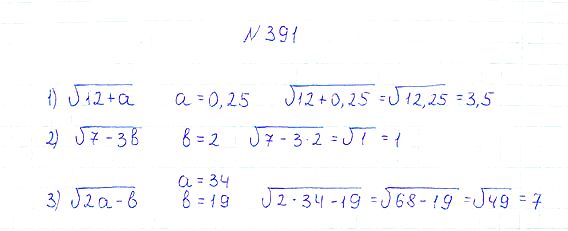 N 391
1) √12+a a = 0,25 √12+0,25 = √12,25 = 3,5
2) √7-3в в = 2 √7-3·2 = √1 = 1
3) √2a-в a = 34 в = 19 √2·34-19 = √68-19 = √49 = 7